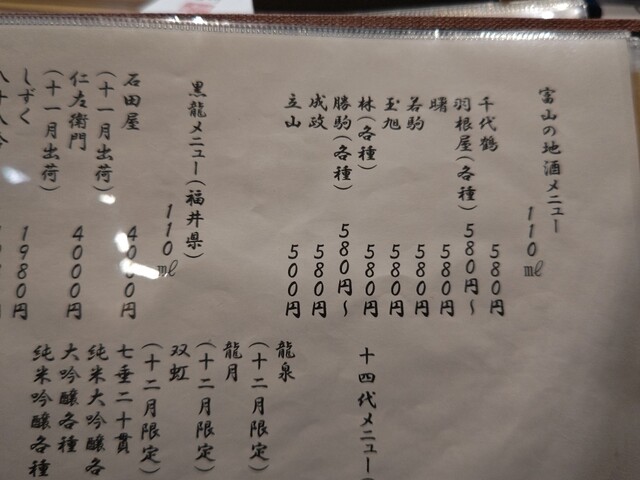 富山の地酒メニュー
110㎖
千代鶴 580円
羽根屋(各種) 580円～
曙 580円
若駒 580円
玉旭 580円
林(各種) 580円
勝駒(各種) 580円～
成政 580円
立山 500円
黒龍メニュー(福井県)
110㎖
石田屋
(十一月出荷) 4000円
仁左衛門
(十一月出荷) 4000円
しずく 1980円
十四代メニュー(
龍泉
(十二月限定)
龍月
(十二月限定)
双虹
(十二月限定)
七垂二十貫
純米大吟醸各
大吟醸各種
純米吟醸各種